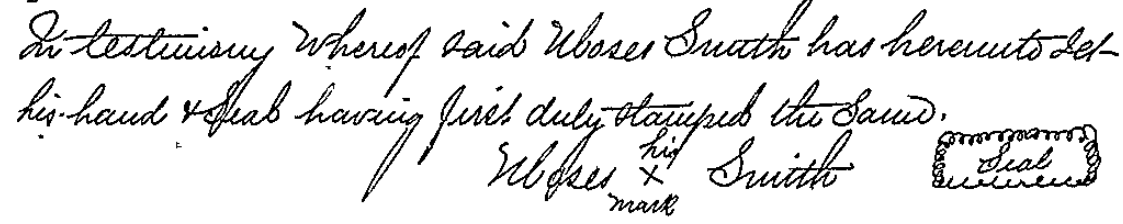 In testimony Whereof said Moses Smith has hereunto Set
his hand & Seal having first duly stamped the Same.
his
Moses x Smith Seal
mark